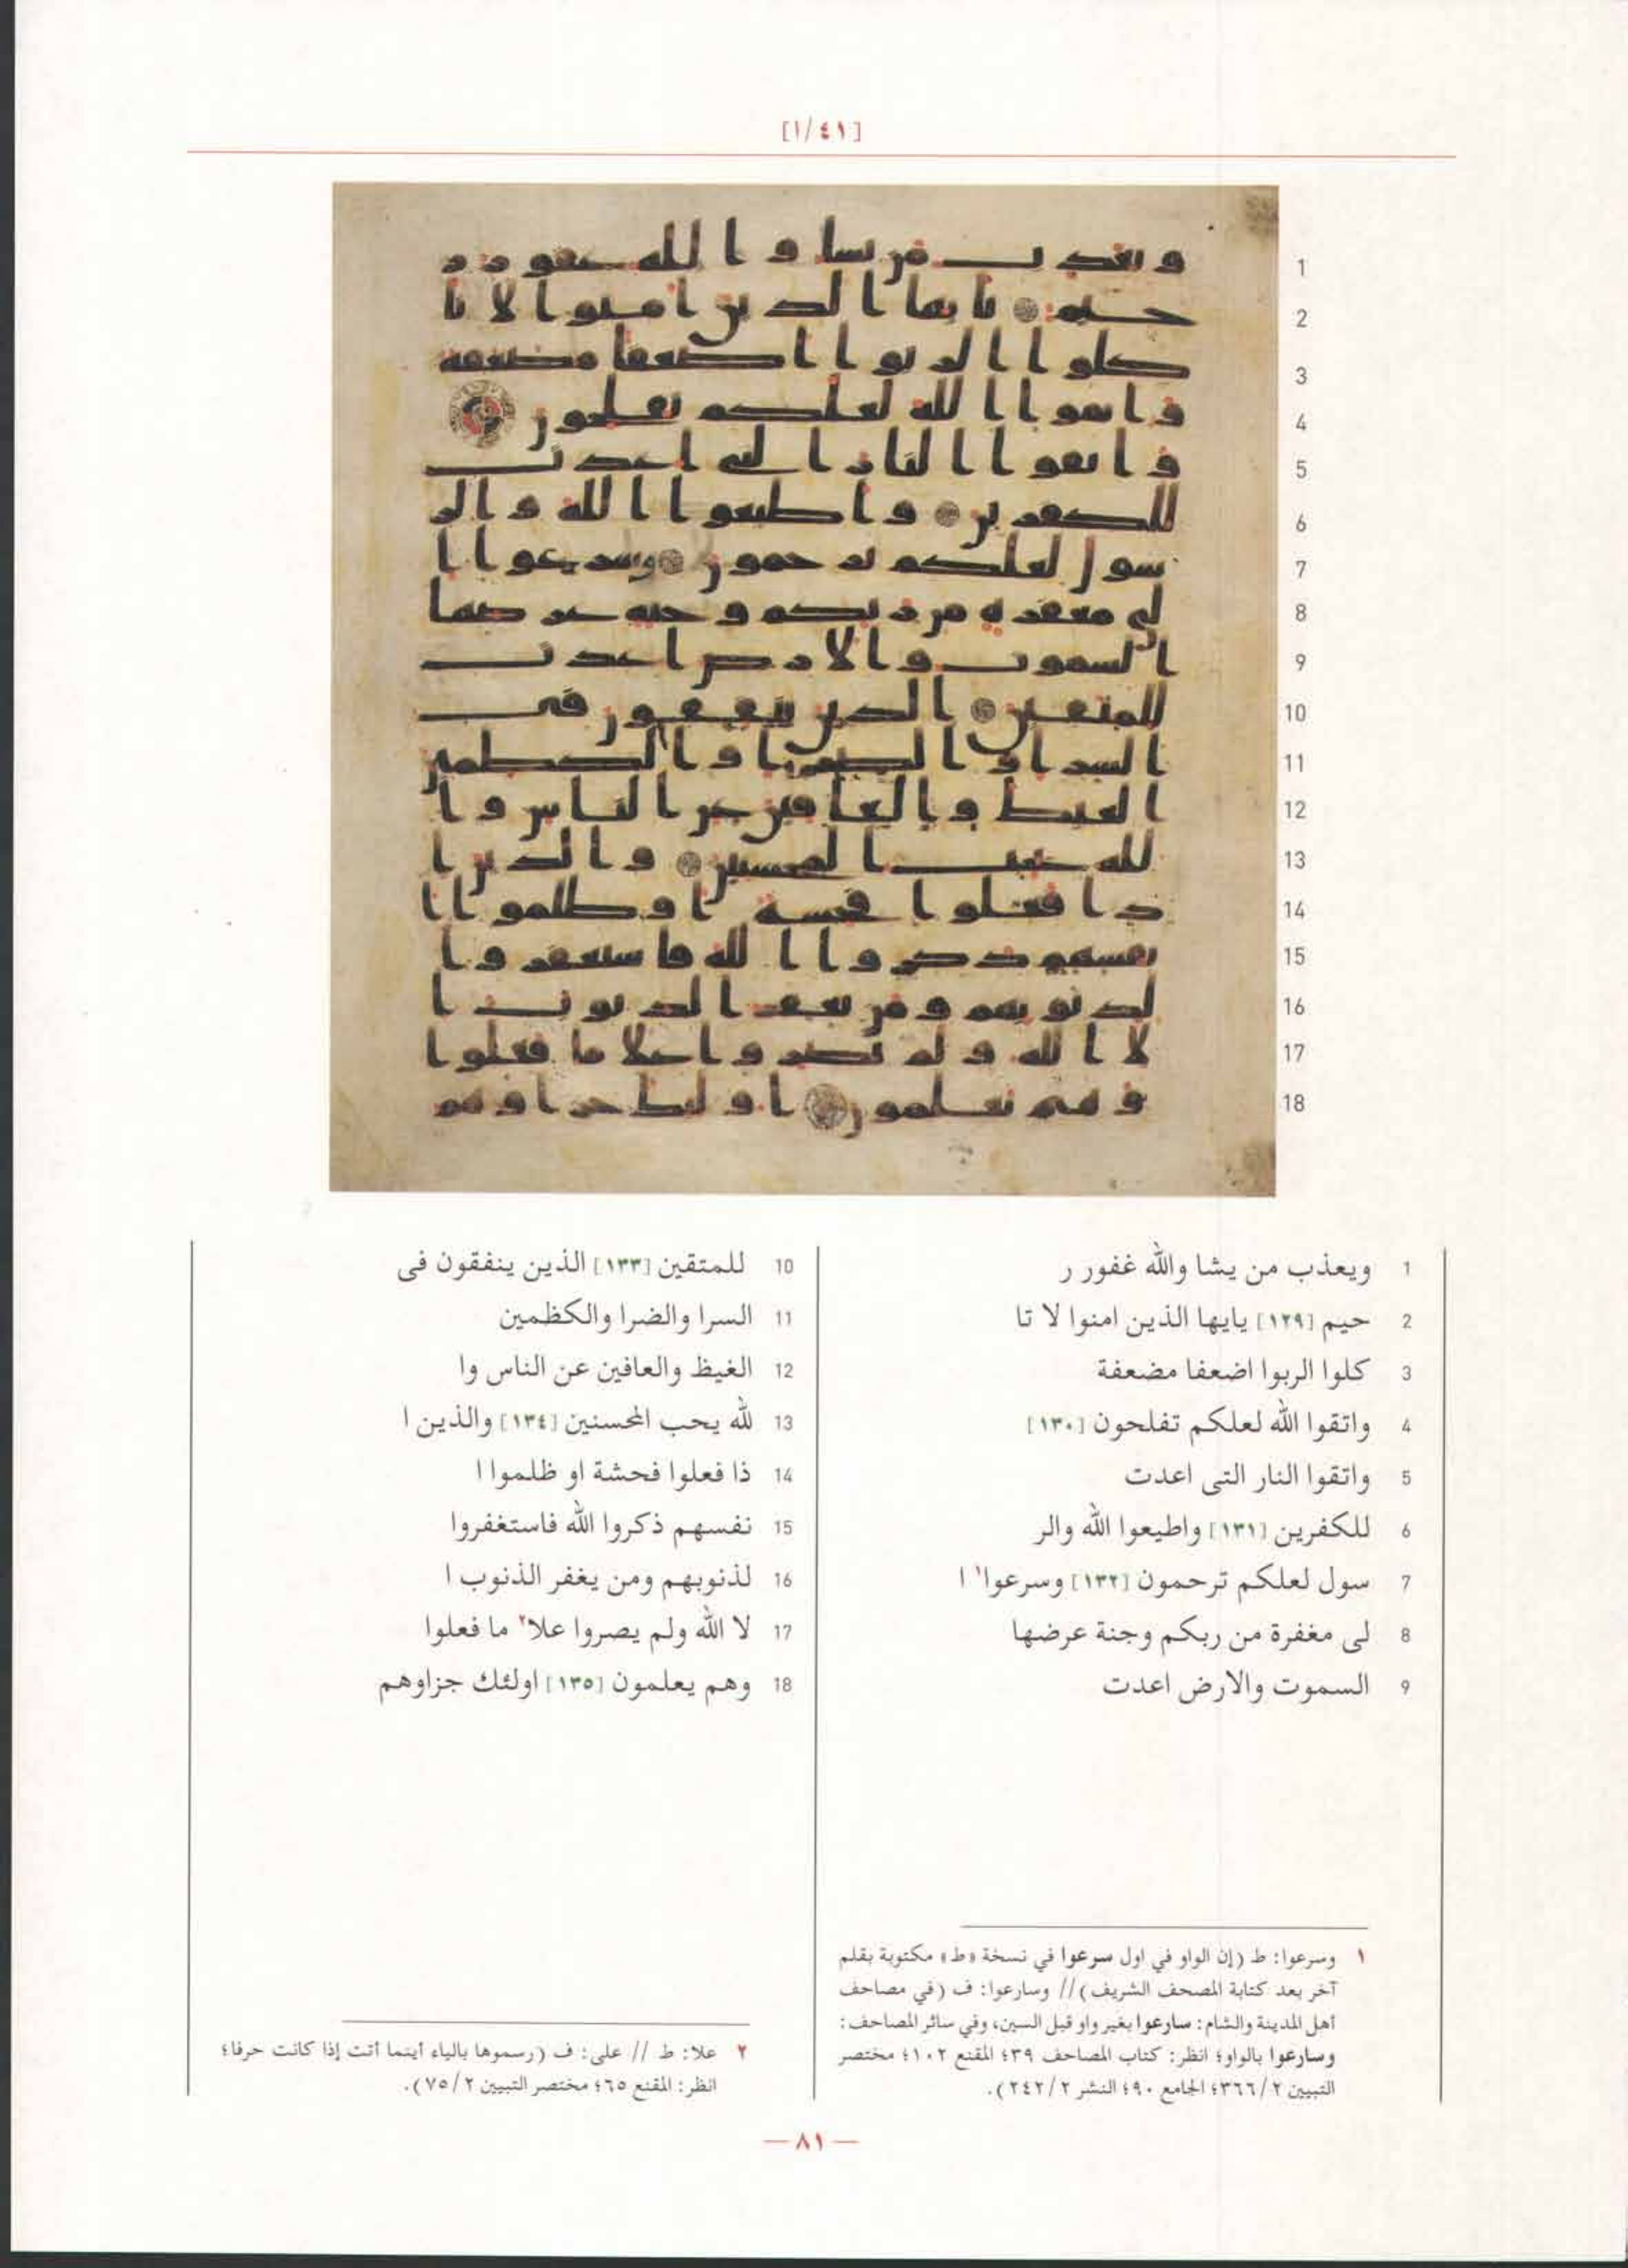 [٤١/١]
1
2
3
4
5
6
7
8
9
10
11
12
13
14
15
16
17
18
1 ويعذب من يشا والله غفور ر
2 حيم [١٢٩] يايها الذين امنوا لا تا
3 كلوا الربوا اضعفا مضعفة
4 واتقوا الله لعلكم تفلحون [١٣٠]
5 واتقوا النار التى اعدت
6 للكفرين [١٣١] واطيعوا الله والر
7 سول لعلكم ترحمون [١٣٢] وسرعوا١ ا
8 لى مغفرة من ربكم وجنة عرضها
9 السموت والارض اعدت
10 للمتقين [١٣٣] الذين ينفقون فى
11 السرا والضرا والكظمين
12 الغيظ والعافين عن الناس وا
13 لله يحب المحسنين [١٣٤] والذين ا
14 ذا فعلوا فحشة او ظلموا ا
15 نفسهم ذكروا الله فاستغفروا
16 لذنوبهم ومن يغفر الذنوب ا
17 لا الله ولم يصروا علا٢ ما فعلوا
18 وهم يعلمون [١٣٥] اولئك جزاوهم
١ وسرعوا: ط (إن الواو في اول سرعوا في نسخة «ط» مكتوبة بقلم
آخر بعد كتابة المصحف الشريف) // وسارعوا: ف (في مصاحف
أهل المدينة والشام: سارعوا بغير واو قبل السين، وفي سائر المصاحف:
وسارعوا بالواو؛ انظر: كتاب المصاحف ٣٩؛ المقنع ١٠٢؛ مختصر
التبيين ٣٦٦/٢؛ الجامع ٩٠؛ النشر ٢٤٢/٢).
٢ علا: ط // على: ف (رسموها بالياء أينما أتت إذا كانت حرفا؛
انظر: المقنع ٦٥؛ مختصر التبيين ٧٥/٢).
— ٨١ —